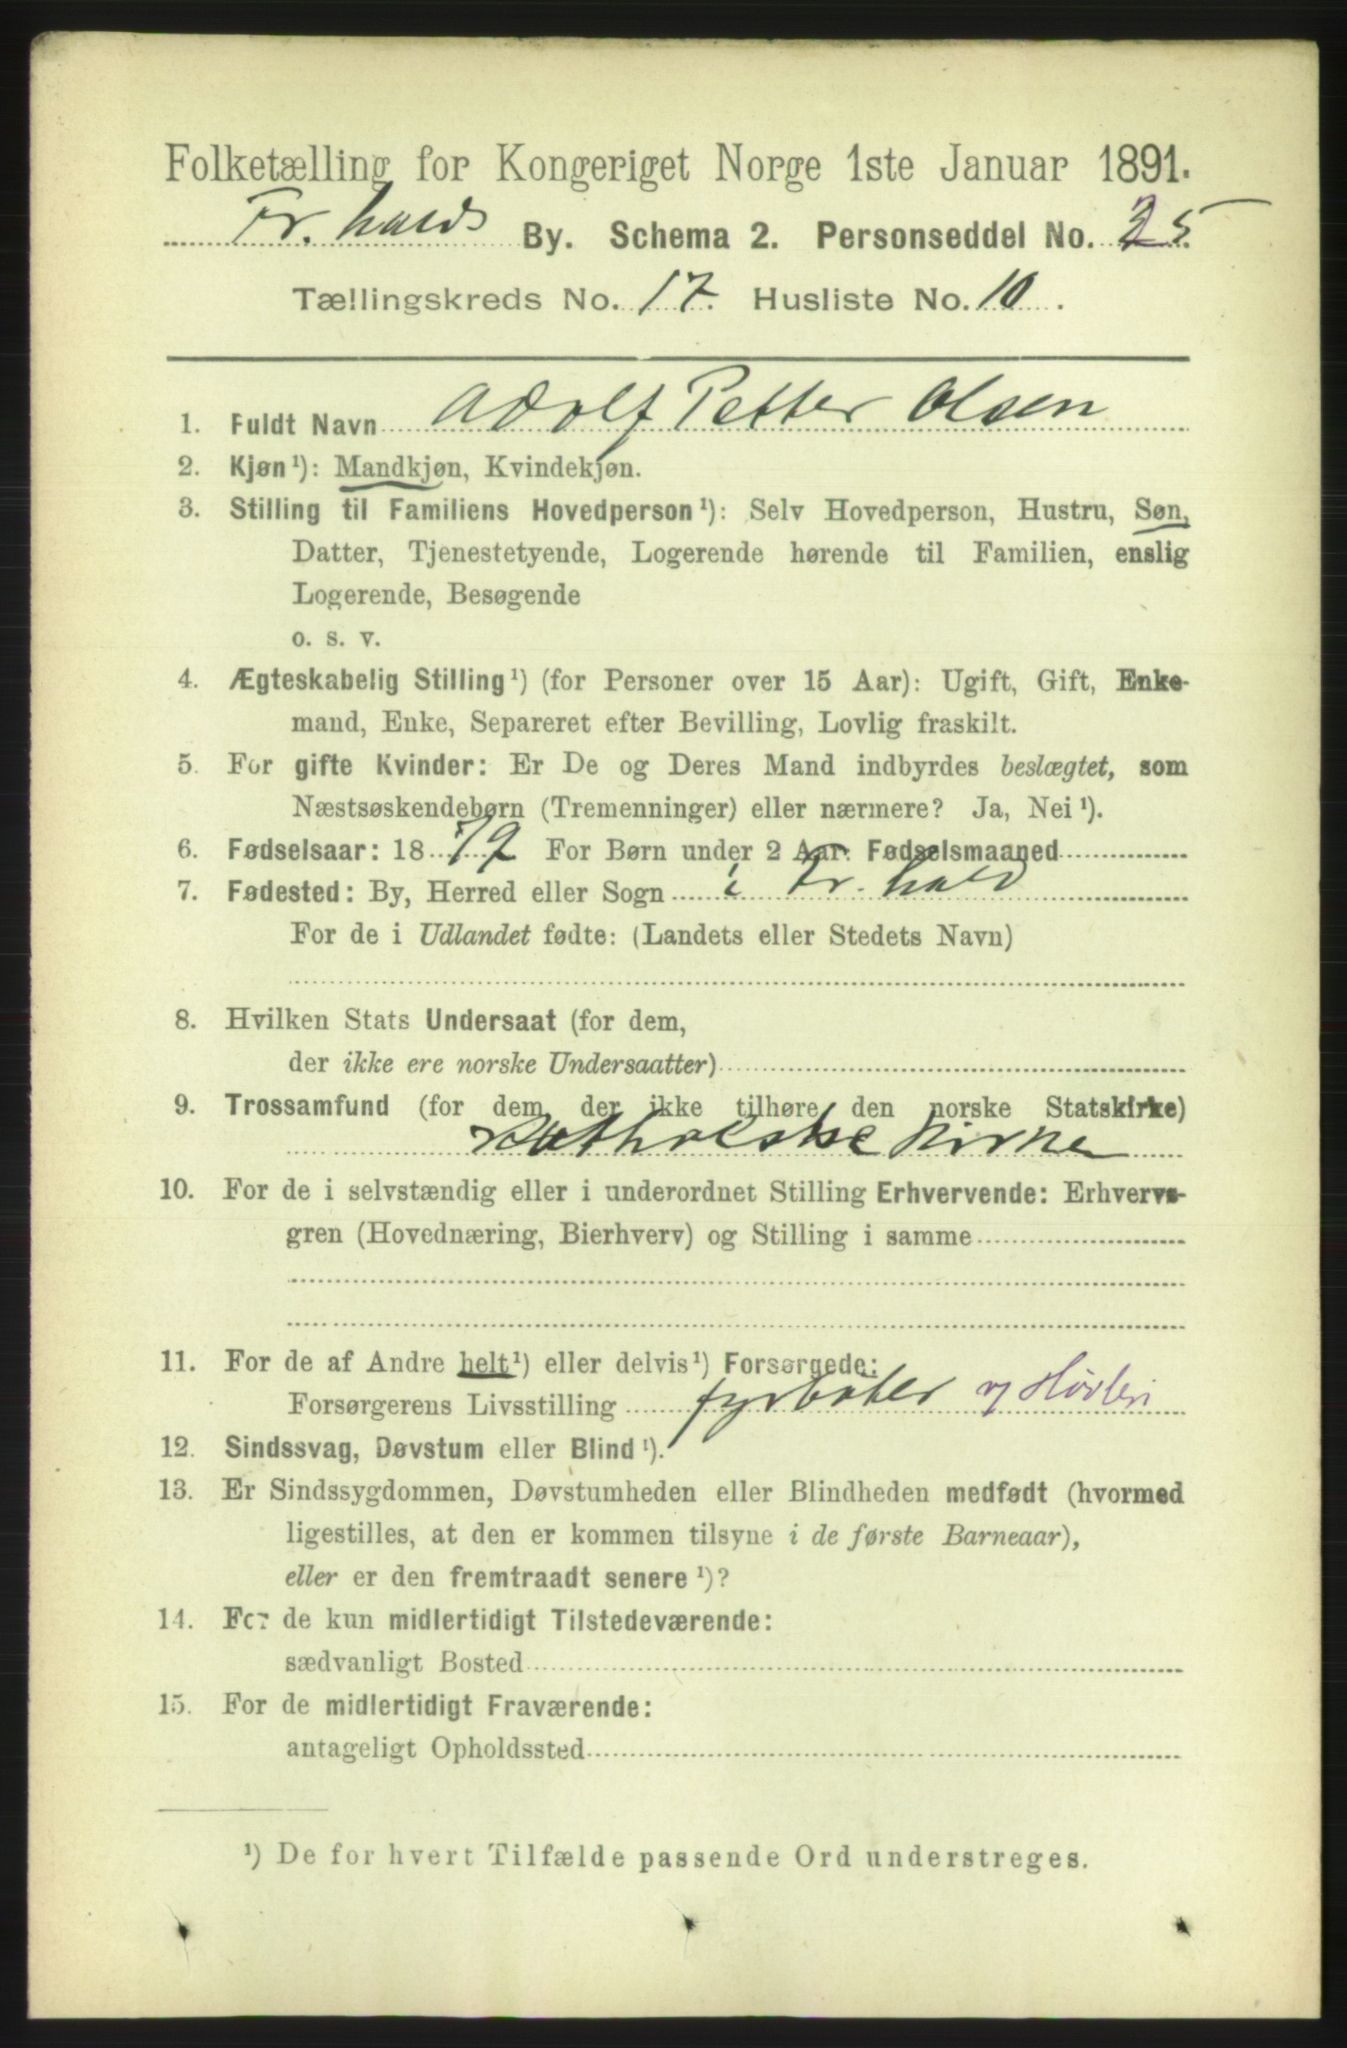 Folketælling for Kongeriget Norge 1ste Januar 1891.
Fr. halds By. Schema 2. Personseddel No. 25
Tællingskreds No. 17. Husliste No. 10.
1. Fuldt Navn Adolf Petter Olsen
2. Kjøn¹): Mandkjøn, Kvindekjøn.
3. Stilling til Familiens Hovedperson¹): Selv Hovedperson, Hustru, Søn,
Datter, Tjenestetyende, Logerende hørende til Familien, enslig
Logerende, Besøgende
o. s. v.
4. Ægteskabelig Stilling¹) (for Personer over 15 Aar): Ugift, Gift, Enke-
mand, Enke, Separeret efter Bevilling, Lovlig fraskilt.
5. For gifte Kvinder: Er De og Deres Mand indbyrdes beslægtet, som
Næstsøskendebørn (Tremenninger) eller nærmere? Ja, Nei¹).
6. Fødselsaar: 1879 For Børn under 2 Aar: Fødselsmaaned
7. Fødested: By, Herred eller Sogn i Fr. hald
For de i Udlandet fødte: (Landets eller Stedets Navn)
8. Hvilken Stats Undersaat (for dem,
der ikke ere norske Undersaatter)
9. Trossamfund (for dem, der ikke tilhøre den norske Statskirke)
Katholske Kirke
10. For de i selvstændig eller i underordnet Stilling Erhvervende: Erhvervs-
gren (Hovednæring, Bierhverv) og Stilling i samme
11. For de af Andre helt¹) eller delvis¹) Forsørgede:
Forsørgerens Livsstilling fyrbøter
12. Sindssvag, Døvstum eller Blind¹).
13. Er Sindssygdommen, Døvstumheden eller Blindheden medfødt (hvormed
ligestilles, at den er kommen tilsyne i de første Barneaar),
eller er den fremtraadt senere¹)?
14. For de kun midlertidigt Tilstedeværende:
sædvanligt Bosted
15. For de midlertidigt Fraværende:
antageligt Opholdssted
¹) De for hvert Tilfælde passende Ord understreges.